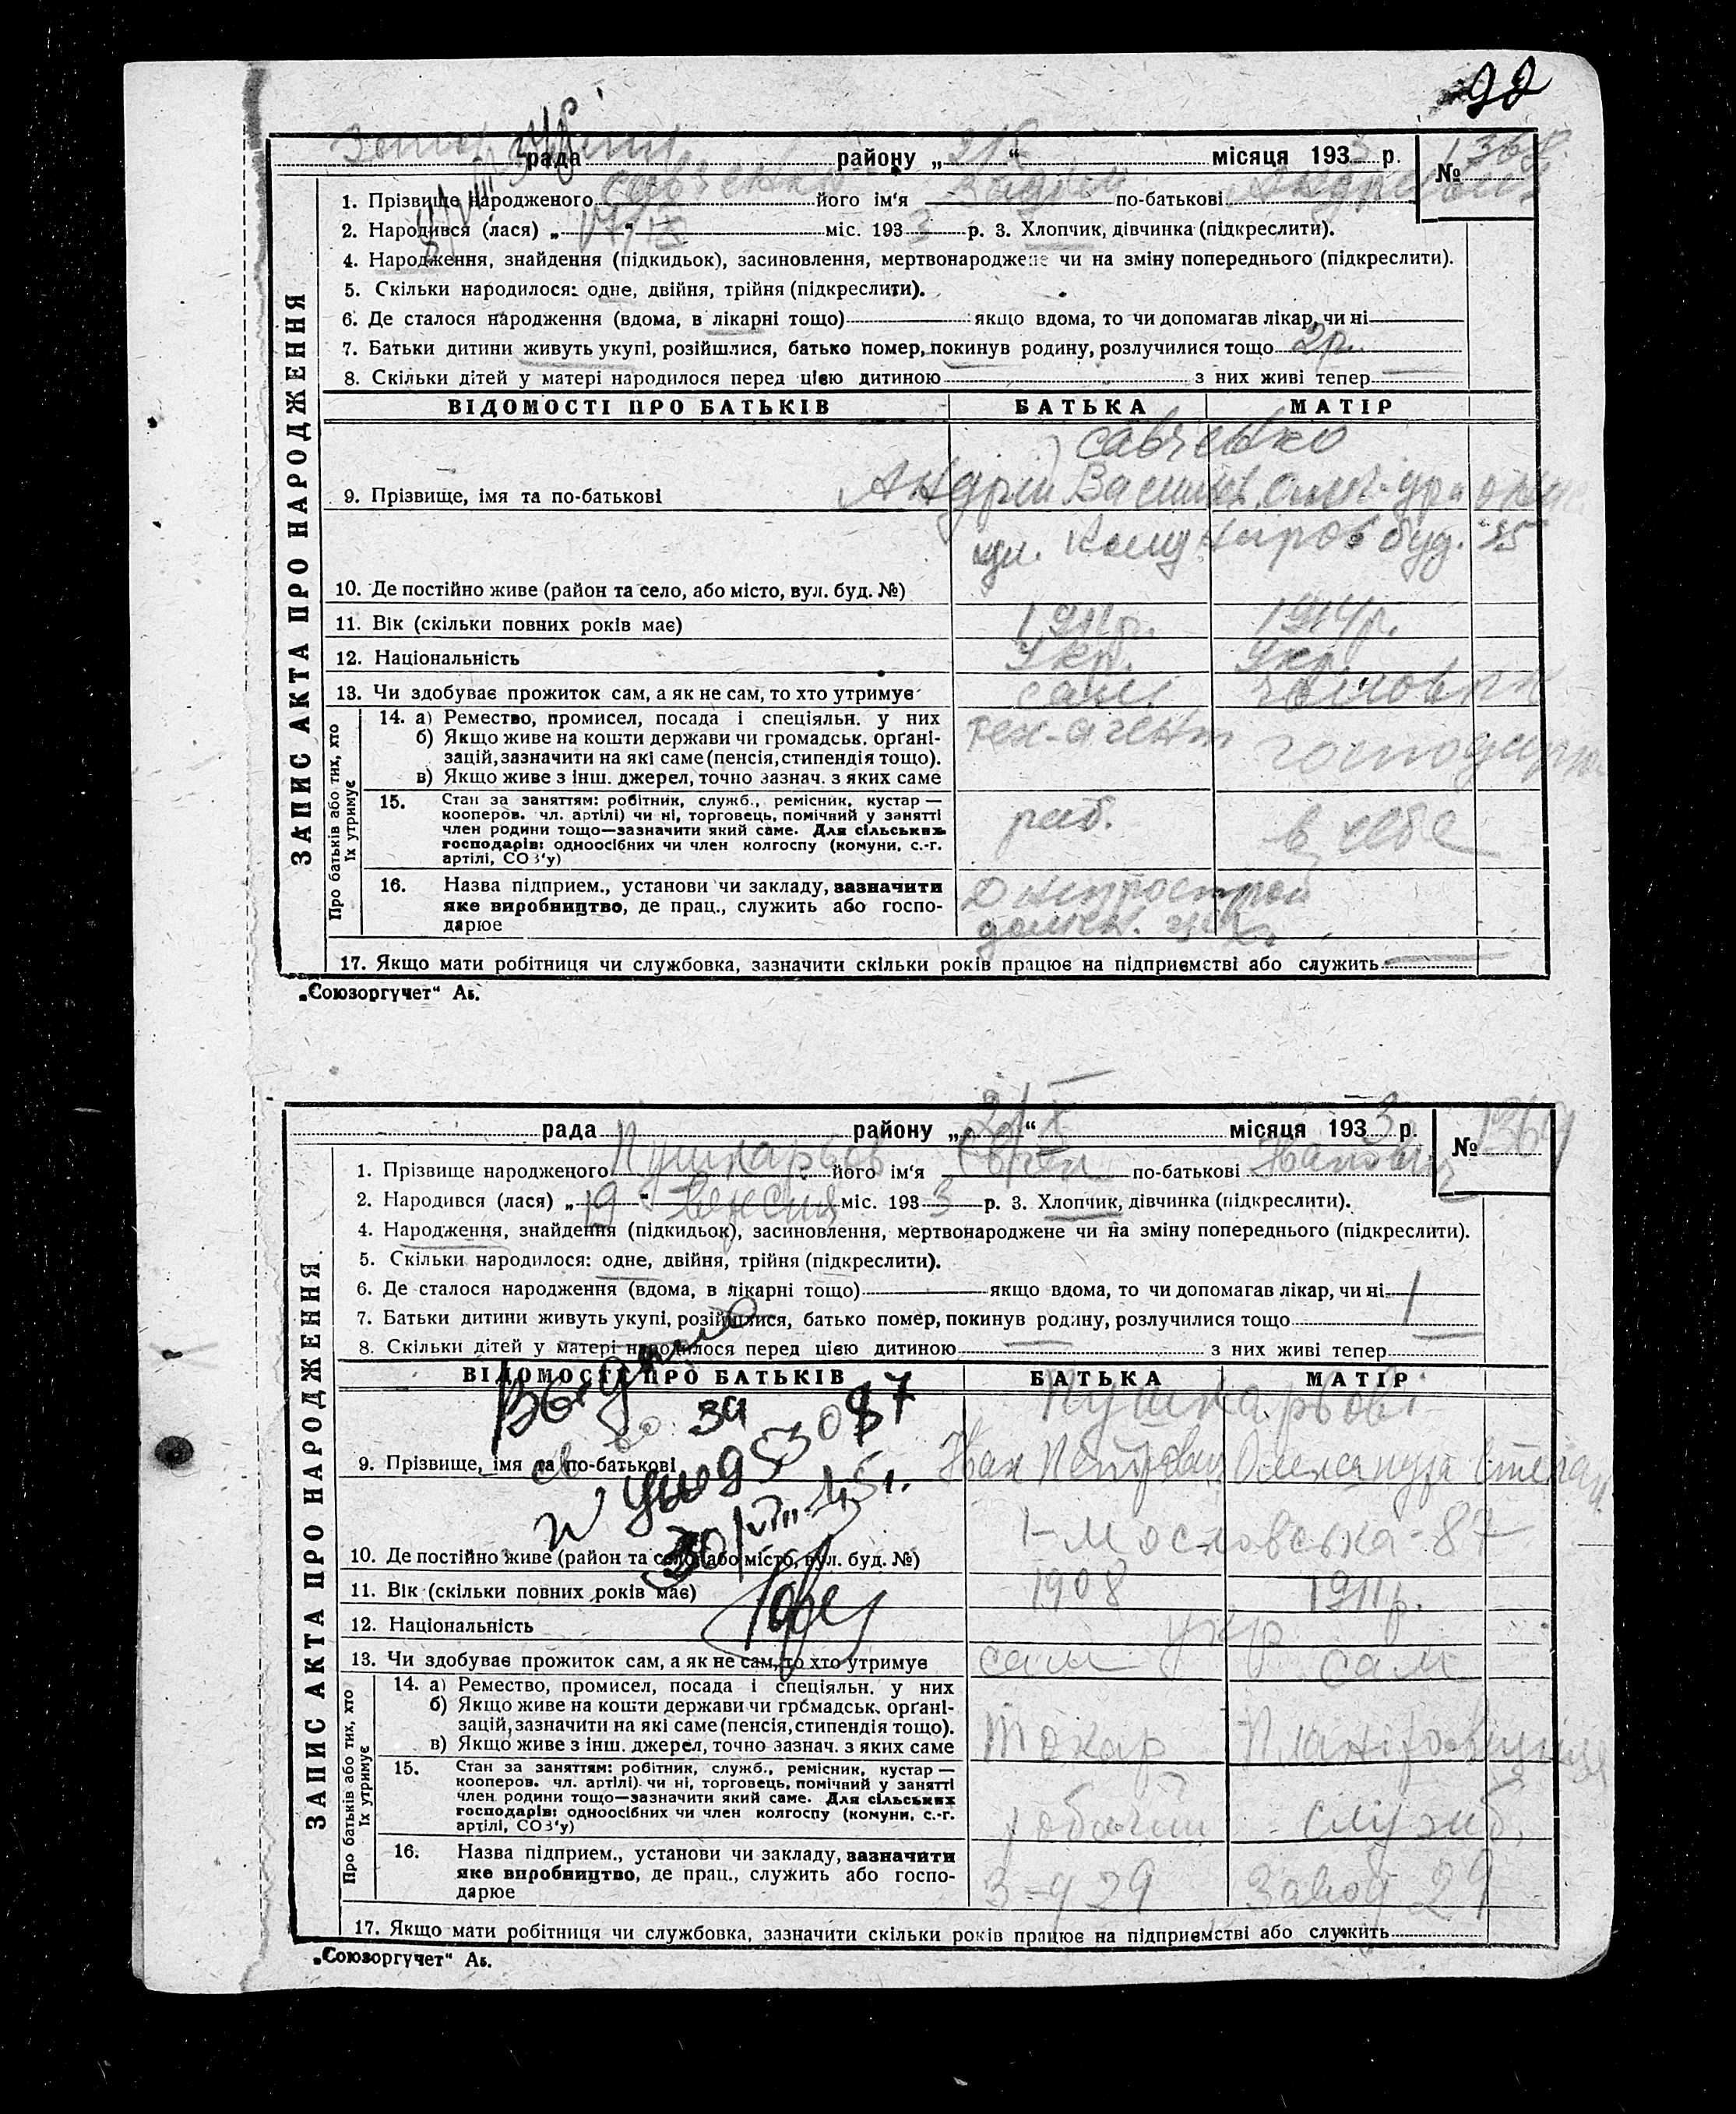 92
рада района „21 X“ місяця 1933 р. № 1368
1. Прізвище народженого Савченко його ім'я по-батькові Андрійович
2. Народився (лася) „17/IX“ міс. 1933 р. 3. Хлопчик, дівчинка (підкреслити).
4. Народження, знайдення (підкидьок), засиновлення, мертвонароджене чи на зміну попереднього (підкреслити).
5. Скільки народилося: одне, двійня, трійня (підкреслити).
6. Де сталося народження (вдома, в лікарні тощо) якщо вдома, то чи допомагав лікар, чи ні
7. Батьки дитини живуть укупі, розійшлися, батько помер, покинув родину, розлучилися тощо 2р.
8. Скільки дітей у матері народилося перед цією дитиною з них живі тепер
ЗАПИС АКТА ПРО НАРОДЖЕННЯ
ВІДОМОСТІ ПРО БАТЬКІВ БАТЬКА МАТІР
Савченко
9. Прізвище, імя та по-батькові Андрій Васильов.
вул. Комунарів буд. 35
10. Де постійно живе (район та село, або місто, вул. буд. №)
11. Вік (скільки повних років має) 1914р.
12. Національність Укр. Укр.
13. Чи здобуває прожиток сам, а як не сам, то хто утримує сам чоловік
Про батьків або тих, хто їх утримує
14. а) Ремество, промисел, посада і спеціяльн. у них тех-агент господарка
б) Якщо живе на кошти держави чи громадськ. орґані-
зацій, зазначити на які саме (пенсія, стипендія тощо).
в) Якщо живе з інш. джерел, точно зазнач. з яких саме
15. Стан за заняттям: робітник, служб., ремісник, кустар —
кооперов. чл. артілі) чи ні, торговець, помічний у занятті
член родини тощо—зазначити який саме. Для сільських
господарів: одноосібних чи член колгоспу (комуни, с.-г.
артілі, СОЗ'у)
роб. в себе
16. Назва підприєм., установи чи закладу, зазначити
яке виробництво, де прац., служить або госпо-
дарює
Дніпрострой
домен. цех
17. Якщо мати робітниця чи службовка, зазначити скільки років працює на підприємстві або служить
„Союзоргучет“ Аб.
рада району „21 X“ місяця 1933 р. № 1369
1. Прізвище народженого Пушкарьов його ім'я Євген по-батькові Іванович
2. Народився (лася) „19“ вересня міс. 1933 р. 3. Хлопчик, дівчинка (підкреслити).
4. Народження, знайдення (підкидьок), засиновлення, мертвонароджене чи на зміну попереднього (підкреслити).
5. Скільки народилося: одне, двійня, трійня (підкреслити).
6. Де сталося народження (вдома, в лікарні тощо) якщо вдома, то чи допомагав лікар, чи ні
7. Батьки дитини живуть укупі, розійшлися, батько помер, покинув родину, розлучилися тощо 1
8. Скільки дітей у матері народилося перед цією дитиною з них живі тепер
ЗАПИС АКТА ПРО НАРОДЖЕННЯ
ВІДОМОСТІ ПРО БАТЬКІВ БАТЬКА МАТІР
Выдано
св-во за
30/VIII-45 г.
Пушкарьові
9. Прізвище, імя та по-батькові Іван Петрович Олександра Степан.
10. Де постійно живе (район та село, або місто, вул. буд. №) 1-Московська-87
11. Вік (скільки повних років має) 1908 1911р.
12. Національність укр
13. Чи здобуває прожиток сам, а як не сам, то хто утримує сам сам
Про батьків або тих, хто їх утримує
14. а) Ремество, промисел, посада і спеціяльн. у них
б) Якщо живе на кошти держави чи громадськ. орґані-
зацій, зазначити на які саме (пенсія, стипендія тощо).
в) Якщо живе з інш. джерел, точно зазнач. з яких саме
Токар Планіровщиця
15. Стан за заняттям: робітник, служб., ремісник, кустар —
кооперов. чл. артілі) чи ні, торговець, помічний у занятті
член родини тощо—зазначити який саме. Для сільських
господарів: одноосібних чи член колгоспу (комуни, с.-г.
артілі, СОЗ'у)
робочий служб.
16. Назва підприєм., установи чи закладу, зазначити
яке виробництво, де прац., служить або госпо-
дарює
З-д 29 Завод 29
17. Якщо мати робітниця чи службовка, зазначити скільки років працює на підприємстві або служить
„Союзоргучет“ Аб.